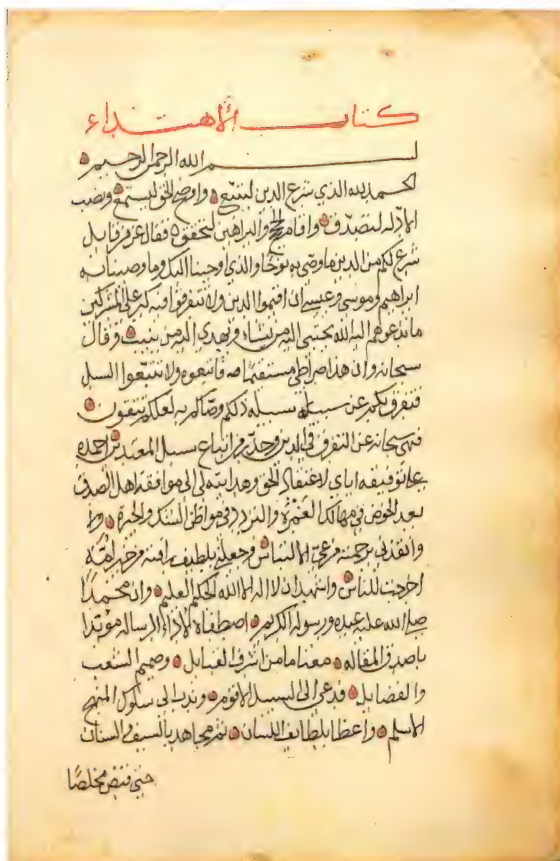 كتاب الاهتداء
بسم الله الرحمن الرحيم
الحمد لله الذي شرع الدين ليتبع واوضح الحق ليستمع ونصب
الادلة لتصدق واقام الحج والبراهين لتحقق فقال عز من قايل
شرع لكم من الدين ما وصى به نوحا والذي اوحينا اليك وما وصينا به
ابراهيم وموسى وعيسى ان اقيموا الدين ولا تتفرقوا فيه كبر على المشركين
ما تدعوهم اليه الله يجتبي اليه من يشاء ويهدي اليه من ينيب وقال
سبحانه وان هذا صراطي مستقيما فاتبعوه ولا تتبعوا السبل
فتفرق بكم عن سبيله ذلكم وصاكم به لعلكم تتقون
فنهى سبحانه عن التفرق في الدين وحذر من اتباع سبيل المعتدين احمده
على توفيقه اياي لاعتقاد الحق وهدايته لي الى موافقة اهل الصدق
بعد الخوض في مهالك الغمرة والتردد في مواطن الشك والحيرة
وانقذني برحمته من الالتباس وجعلني بلطيف رافته من خير امة
اخرجت للناس واشهد ان لا اله الا الله الحكيم العليم وان محمدا
صلى الله عليه عبده ورسوله الكريم اصطفاه لاداء الرسالة مؤيدا
باصدق المقاله من اشرف القبايل وصميم الشعب
والفضايل فدعى الى السبيل الاقوم وندب الى سلوك المنهج
الاسلم واعظا بلطايف اللسان ثم مجاهدا بالسيف والسنان
حتى قبض مخلصا